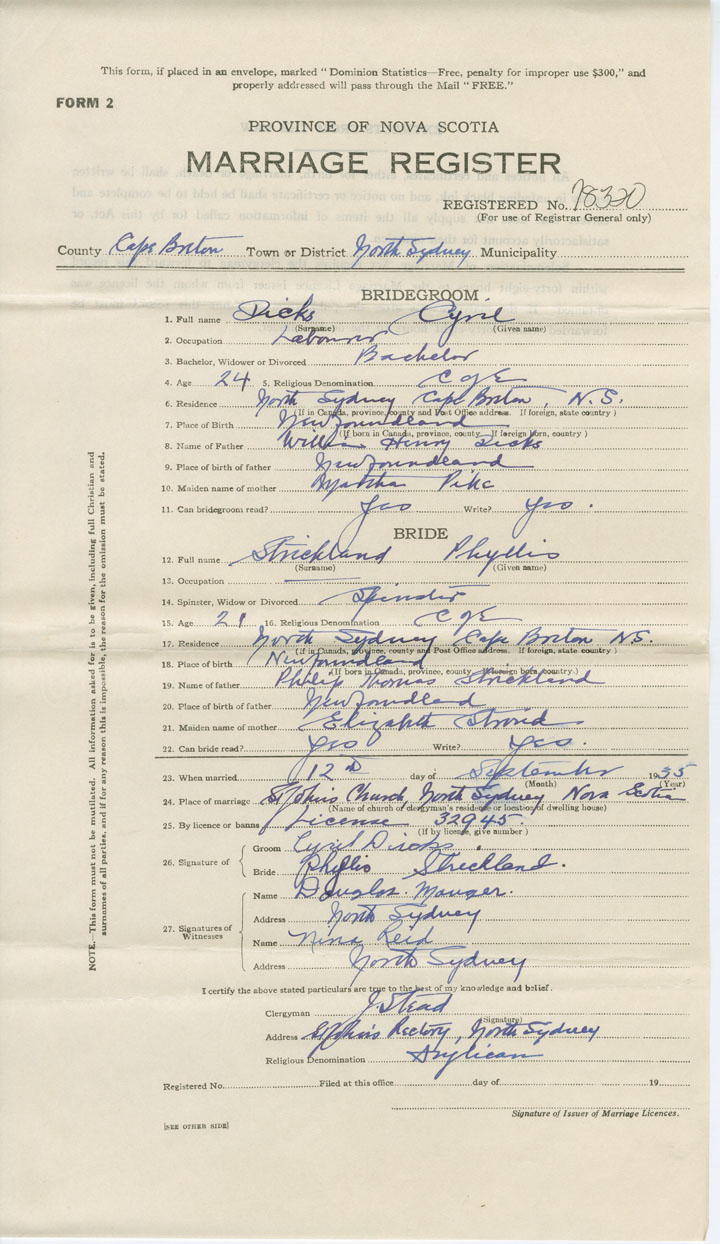 This form, if placed in an envelope, marked "Dominion Statistics—Free, penalty for improper use $300," and
properly addressed will pass through the Mail "FREE."
FORM 2
PROVINCE OF NOVA SCOTIA
MARRIAGE REGISTER
REGISTERED No. 78320
(For use of Registrar General only)
County Cape Breton Town or District North Sydney Municipality
BRIDEGROOM
1. Full name Dicks Cyril
(Surname) (Given name)
2. Occupation Labourer
3. Bachelor, Widower or Divorced Bachelor
4. Age 24 5. Religious Denomination C of E
6. Residence North Sydney Cape Breton, N.S.
(If in Canada, province, county and Post Office address. If foreign, state country)
7. Place of Birth Newfoundland
(If born in Canada, province, county. If foreign born, country)
8. Name of Father William Henry Dicks
9. Place of birth of father Newfoundland
10. Maiden name of mother Martha Pike
11. Can bridegroom read? Yes Write? Yes.
BRIDE
12. Full name Strickland Phyllis
(Surname) (Given name)
13. Occupation
14. Spinster, Widow or Divorced Spinster
15. Age 21 16. Religious Denomination C of E
17. Residence North Sydney Cape Breton N.S.
(if in Canada, province, county and Post Office address. If foreign, state country)
18. Place of birth Newfoundland
(If born in Canada, province, county. If foreign born, country.)
19. Name of father Philip Thomas Strickland
20. Place of birth of father Newfoundland
21. Maiden name of mother Elizabeth Stroud
22. Can bride read? Yes Write? Yes.
23. When married 12th day of September 1935
(Month) (Year)
24. Place of marriage St John's Church, North Sydney Nova Scotia
(Name of church or clergyman's residence or location of dwelling house)
25. By licence or banns License 32945.
(If by license, give number)
26. Signature of
Groom Cyril Dicks.
Bride Phyllis Strickland.
27. Signatures of
Witnesses
Name Douglas Mauger.
Address North Sydney
Name Nina Reid
Address North Sydney
I certify the above stated particulars are true to the best of my knowledge and belief.
Clergyman J. Stead
(Signature)
Address St John's Rectory, North Sydney
Religious Denomination Anglican
Registered No. Filed at this office day of 19
Signature of Issuer of Marriage Licences.
[SEE OTHER SIDE]
NOTE.—This form must not be mutilated. All information asked for is to be given, including full Christian and
surnames of all parties, and if for any reason this is impossible, the reason for the omission must be stated.